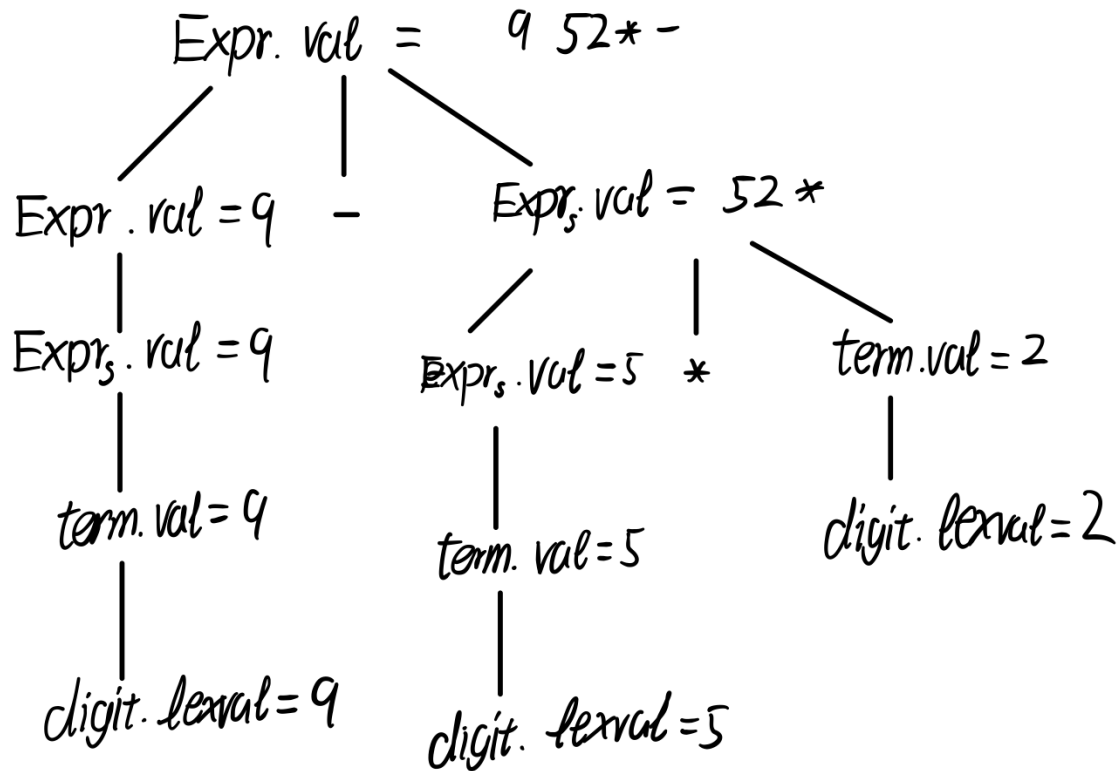 Expr. val = 9 52* -
Expr . val = 9 - Exprs. val = 52 *
Exprs. val = 9 Exprs. val = 5 * term.val = 2
term. val = 9 term. val = 5 digit. lexval = 2
digit. lexval = 9 digit. lexval = 5